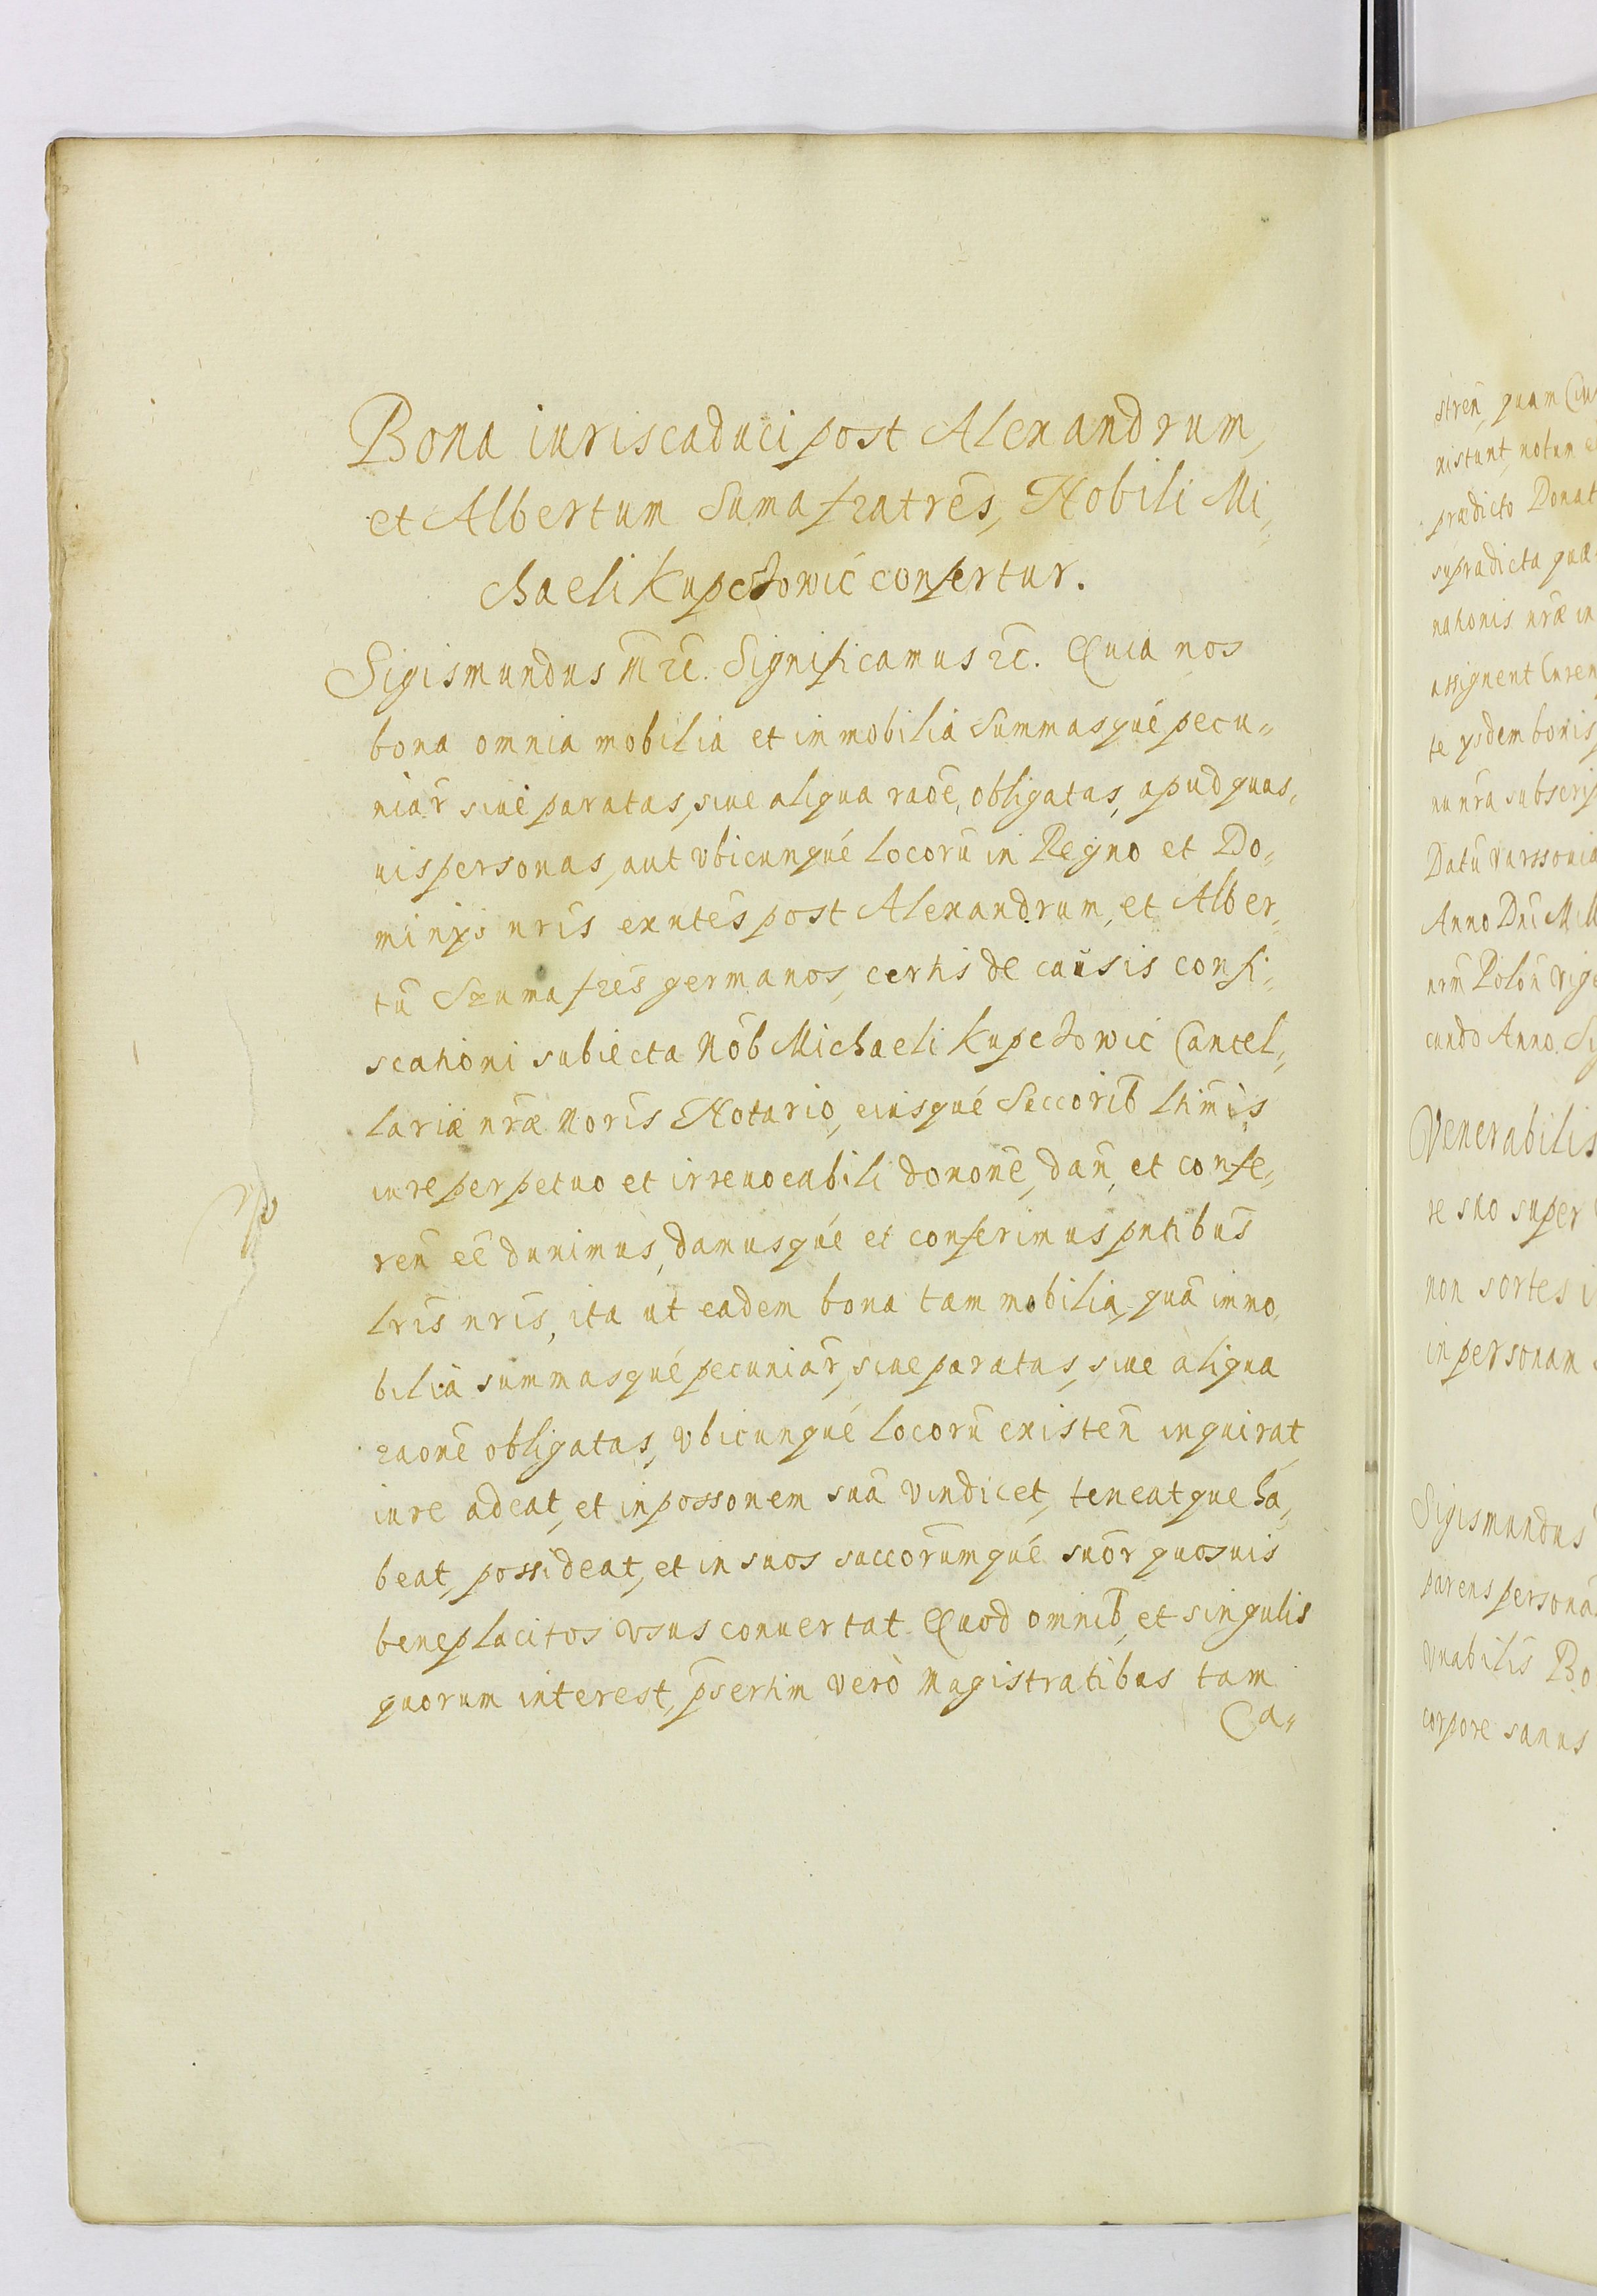 Bona iuris caduci post Alexandrum,
et Albertum Suma fratrēs, Nobili Mi„
chaeli Kupchowić confertur.
Sigismundus M̄ r̄c̄. Significamus r̄c̄. Quia nos
bona omnia mobilia et immobilia summasqué pecu„
niar̄ siue paratas, siue aliqua raōē, obligatas, apud quas„
uis personas, aut vbicunqué locorū in Regno et Do„
minÿs nr̄is exntēs post Alexandrum, et Alber„
tū Szuma fr̄ēs germanos, certis de causis confi„
scationi subiecta Nōb Michaeli Kupchowić Cancel„
lariæ nr̄æ Mor̄is Notario, eiusqué Seccorib̄ ltīm̄is
iure perpetuo et irreuocabili dononē, dan̄, et confe„
ren̄ eē̄ duximus, damusqué et conferimus pn̄tibus
lr̄is nr̄is, ita ut eadem bona tam mobilia, quā immo„
bilia summasqué pecuniar̄, siue paratas, siue aliqua
raōnē obligatas, vbicunqué locorū existen̄ inquirat
iure adeat, et in possonem suā vindicet, teneatque ha„
beat, possideat, et in suos succōrumqué suōr quosuis
beneplacitos vsus conuertat. Quod omnib̄, et singulis
quorum interest, p̄sertim verò Magistratibus tam
Ca„
stren̄, quam
xistunt, notum
prædicto Donat
supradicta quæ
nationis nr̄æ in
assignent
te ysdem bonis
nu nr̄a subscrip
Datū Varssouiæ
Anno Dn̄i Mill
nr̄m̄ Polōn̄ Vige
cundo Anno. Si
Venerabilis
re suo super
non sortes i
in personam
Sigismundus
parens persona
vnabilis Bo
corpore sanus